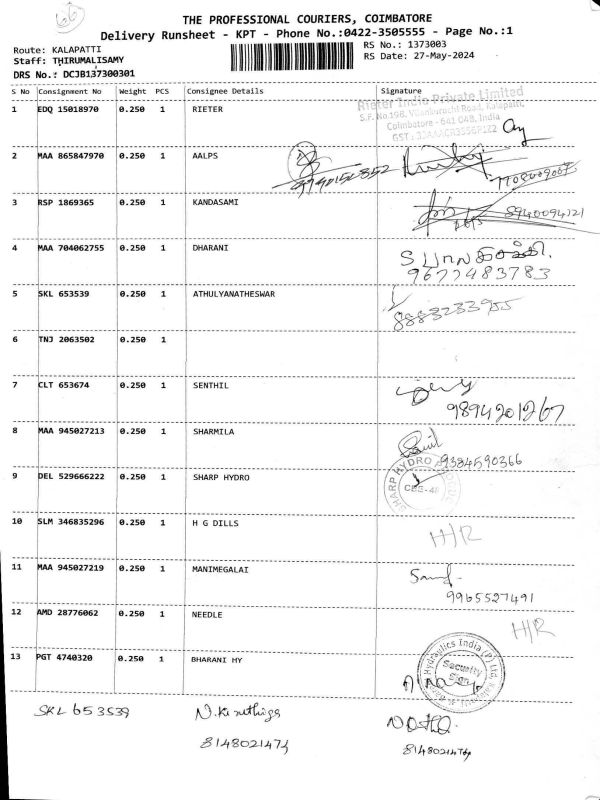 66
THE PROFESSIONAL COURIERS, COIMBATORE
Delivery Runsheet - KPT - Phone No.:0422-3505555 - Page No.:1
Route: KALAPATTI
RS No.: 1373003
Staff: THIRUMALISAMY
RS Date: 27-May-2024
DRS No.: DCJB137300301
S No Consignment No Weight PCS Consignee Details Signature
Rieter India Private Limited
1 EDQ 15018970 0.250 1 RIETER
Coimbatore - 641 048, India
2 MAA 865847970 0.250 1 AALPS
3 RSP 1869365 0.250 1 KANDASAMI
8940094121
4 MAA 704062755 0.250 1 DHARANI
9677483783
5 SKL 653539 0.250 1 ATHULYANATHESWAR
8883233955
6 TNJ 2063502 0.250 1
7 CLT 653674 0.250 1 SENTHIL
9894201267
8 MAA 945027213 0.250 1 SHARMILA
9384590366
9 DEL 529666222 0.250 1 SHARP HYDRO
SHARP HYDRO
10 SLM 346835296 0.250 1 H G DILLS
H/R
11 MAA 945027219 0.250 1 MANIMEGALAI
9965527491
12 AMD 28776062 0.250 1 NEEDLE
H/R
13 PGT 4740320 0.250 1 BHARANI HY
Hydraulics India (P) Ltd
Security
Sign
SKL 653539 N.Kiruthiga
8148021474 8148021474